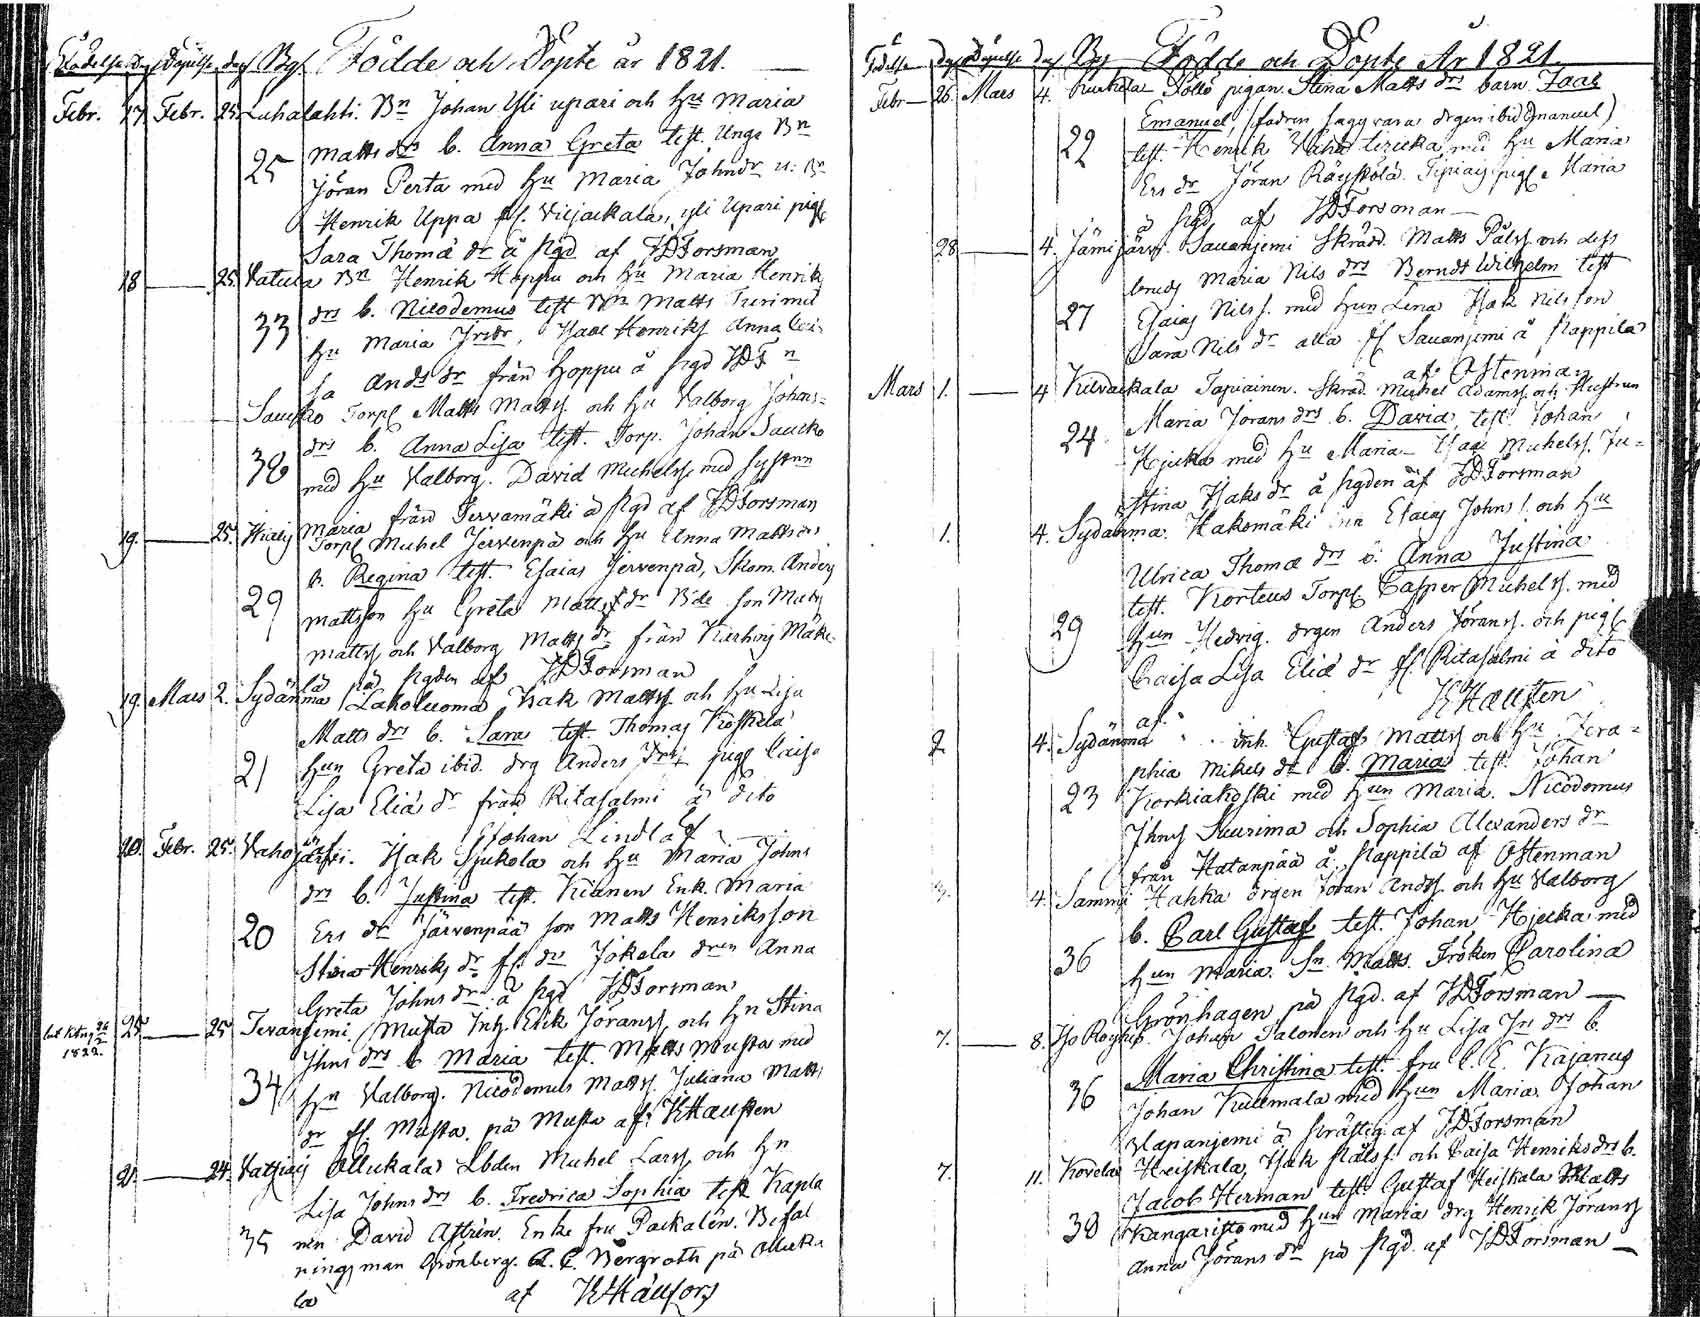 Födelse dag Döpelse dag By. Födde och Döpte år 1821.
Febr. 17 Febr. 25 Luhalahti. Bn Johan Yli upari och Hu Maria
Matts drs b. Anna Greta test. Unga Bn
25 Jöran Perta med Hu Maria Johns dr u: Bn
Henrik Uppa ff. Viljackala, yli Upari pig
Sara Thomæ dr å pgd af JDForsman
18 25. Vatula Bn Henrik Hoppu och Hu Maria Henrik
drs b. Nicodemus test Bn Matts Turi med
33 Hu Maria, Isac Henriks Anna Cai-
sa Ands dr från Hoppu å pgd JDFn
Saucko Torp Matts Matts och Hu Valborg Johns-
drs b. Anna Lisa test. Torp. Johan Saucko
38 med Hu Valborg. David Michels med systern
Maria från Tervamäki å pgd af JDForsman
19. 25. Torp Michel Jervenpä och Hu Anna Matts drs
b. Regina test. Esaias Jervenpä, Skom. Anders
29 Mattsson Hu Greta Matts dr Bde son Matts
Matts och Valborg Matts dr från Karhois Mäke-
lä på pgden af JDForsman
19. Mars 2. Sydänma Lakoluoma Isak Matts och Hu Lisa
Matts drs b. Sara test. Thomas Koskela
21 Hun Greta ibid. drg Anders pig Caisa
Lisa Eliæ dr från Ritasalmi å dito
af Johan Lindlöf
20. Febr. 25. Vahojärfvi. Isak Sjukola och Hu Maria Johns
drs b. Justina test. Kianen Enk. Maria
20 Ers dr Järvenpää son Matts Henriksson
Stina Henriks dr ff. Jokela drn Anna
Greta Johns dr å pgd JDForsman
25. 25 Tevanjemi Musta Inh. Erik Jörans och Hn Stina
1822.
Jhns drs b Maria test. Matts Musta med
34 Hn Valborg. Nicodemus Matts. Juliana Matts
dr ff. Musta. på Musta af KHausten
21. 24. Vatsiais Ollickala Lbden Michel Lars och Hn
Lisa Johns drs b. Fredrica Sophia test Kapla
35 nen David Astrén. Enke fru Packalén. Befal
nings man Grönberg. A. C. Bergroth på Ollicka
la af
Födelse dag Döpelse dag By Födde och Döpte År 1821.
Febr 26. Mars 4. Kurkela Pöllö pigan. Stina Matts drs barn Isac
Emanuel, (fadren säges vara drgen ibid Emanuel)
22 test. Henrik med Hu Maria
Ers dr Jöran Röyskölä. pig. Maria
å pgd af JDForsman
28 4. Jämijärvi. Sauanjemi Skrädd. Matts Påls. och dess
hustru Maria Nils drs Berndt Wilhelm test
27 Esaias Nils. med Hun Lena Isak Nilsson
Sara Nils dr alla ff Sauanjemi å Kappila
af Ostenman
Mars 1. 4 Kilvackala Tapiainen. Skräd. Michel Adams. och Hustrun
Maria Jörans drs b. David, test. Johan
24 Hjecka med Hu Maria Isac Michelss. Ju-
stina Isaks dr å pgden af JDForsman
1. 4. Sydänma. Hakomäki inh Esaias Johns. och Hu
Ulrica Thomæ drs b: Anna Justina
test. Korteus Torp. Casper Michels. med
29 Hun Hedvig. drgen Anders Jörans. och pig
Caisa Lisa Eliæ dr ff. Ritasalmi å dito
af KHausten
2 4. Sydänma inh. Gustaf Matts och Hu Zera-
phia Mikels dr b. Maria test. Johan
23 Korkiakoski med Hun Maria. Nicodemus
Jhns Suurima och Sophia Alexanders dr
från Hatanpää å Kappila af Ostenman
3. 4. Sammi Hahka drgen Jöran Ands. och Hu Valborg
b. Carl Gustaf test. Johan Hjecka med
36 Hun Maria. Sn. Matts. Fröken Carolina
Grönhagen på pgd. af JDForsman
7. 8. Iso Röyhiö. Johan Salonen och Hu Lisa Jn drs b.
Maria Christina test. fru C. E. Kajanus
36 Johan Kuumala med Hun Maria. Johan
Vapanjemi å af JDForsman
7. 11. Kovelax Heiskala, Isak Påls. och Caisa Henriks drs b.
Jacob Herman test. Gustaf Heiskala Matts
30 Kangaristo med Hun Maria drg Henrik Jörans
Anna Jörans dr på pgd. af JDForsman